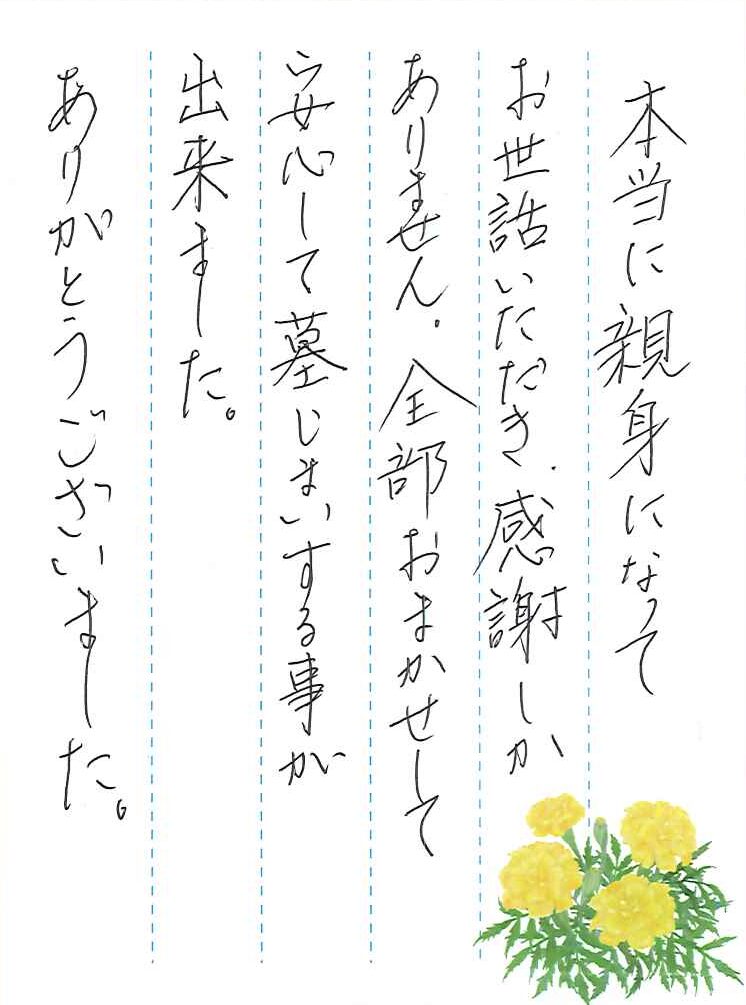 本当に親身になって
お世話いただき、感謝しか
ありません。全部おまかせして
安心して墓じまいする事が
出来ました。
ありがとうございました。